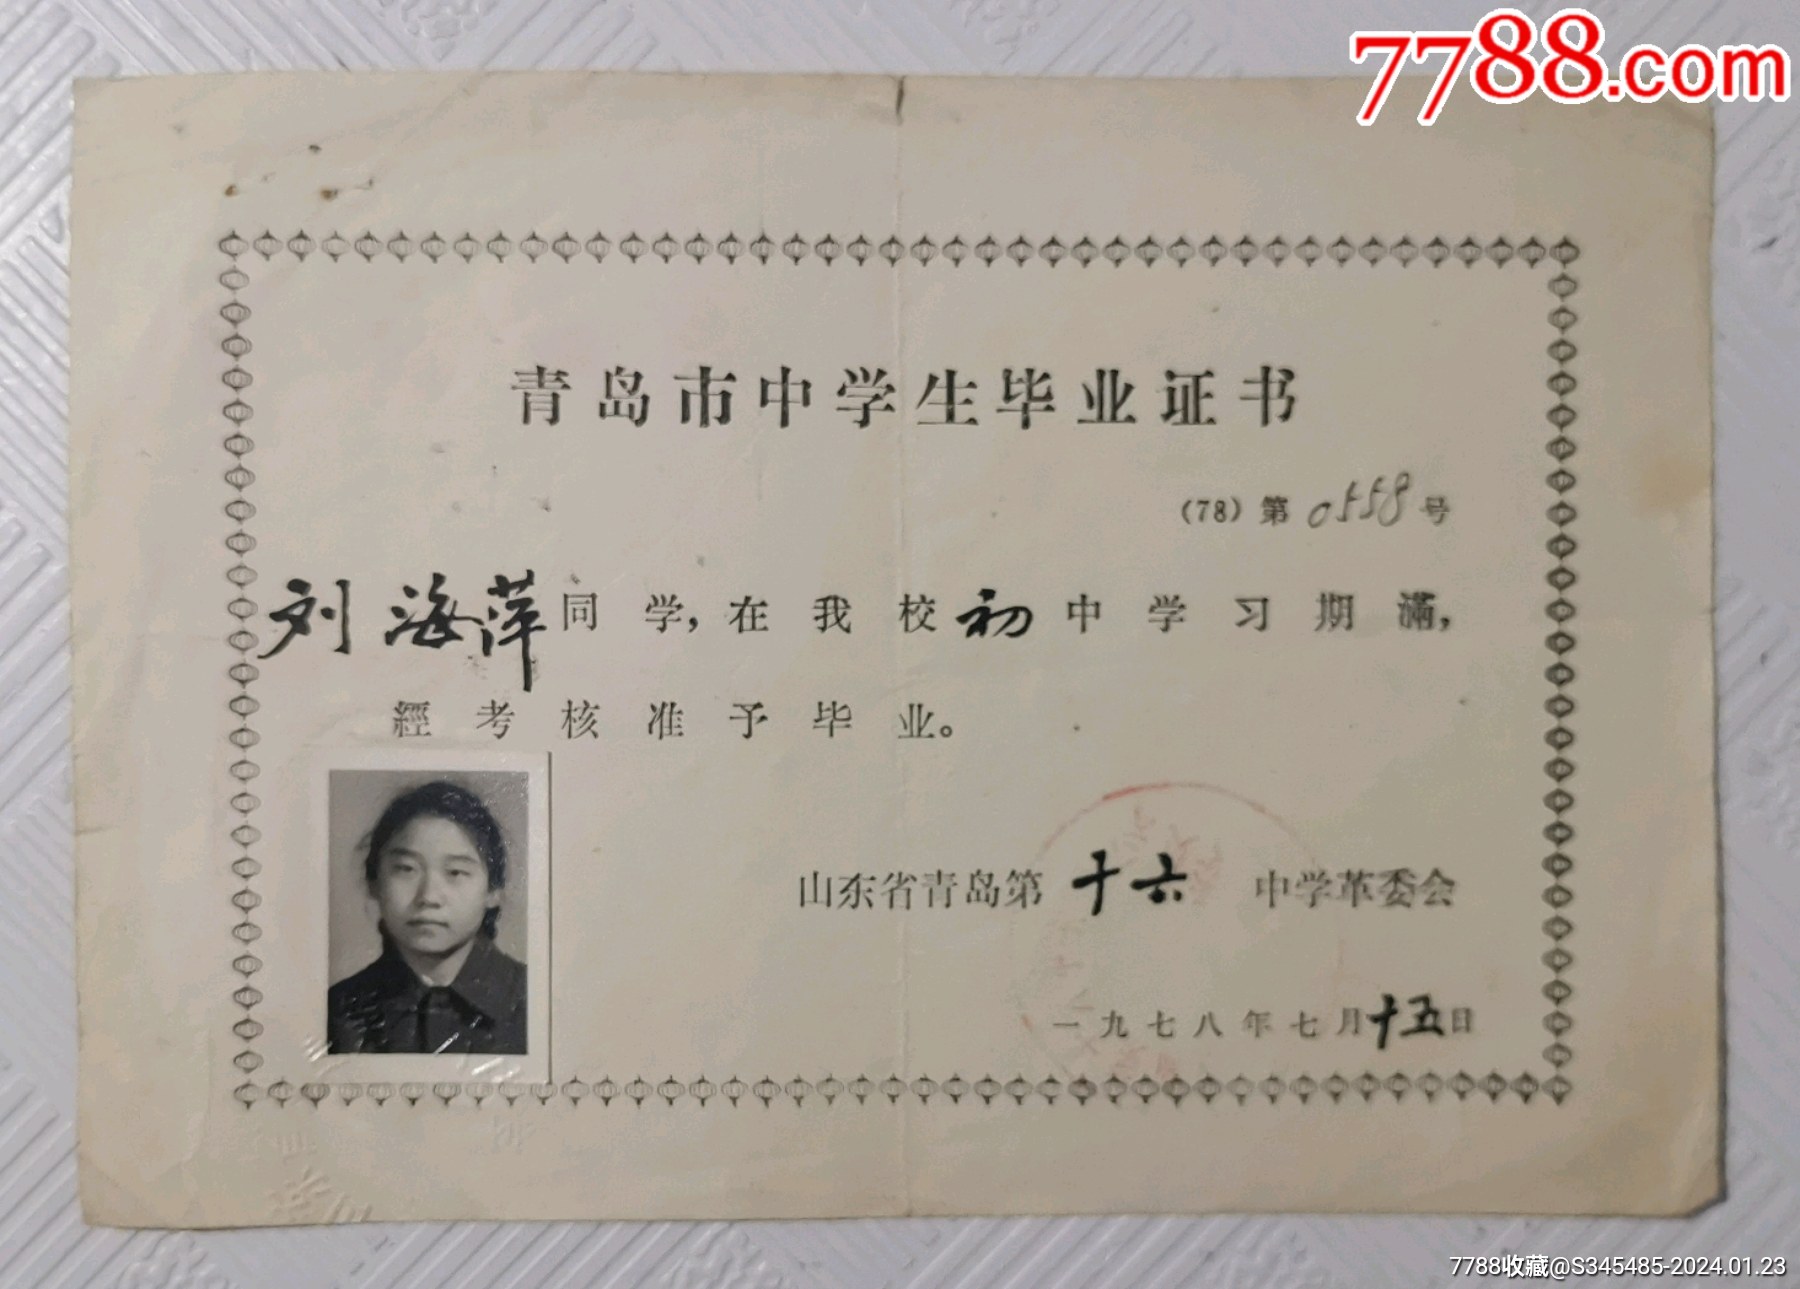 7788.com
青岛市中学生毕业证书
(78) 第 0558 号
刘海萍同学,在我校初中学习期满,
經考核准予毕业。
山东省青岛第十六中学革委会
一九七八年七月十五日
7788收藏@S345485-2024.01.23